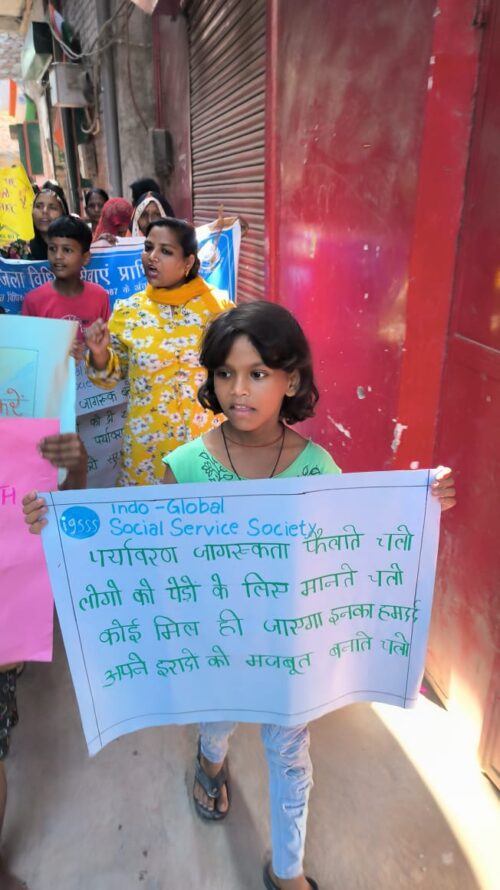 जिला विधिक सेवाएं प्राधि
igsss
Indo-Global
Social Service Society
पर्यावरण जागरूकता फैलाते चलो
लोगो को पेड़ो के लिए मानते चलो
कोई मिल ही जाएगा इनका हमदर्द
अपने इरादो को मजबूत बनाते चलो